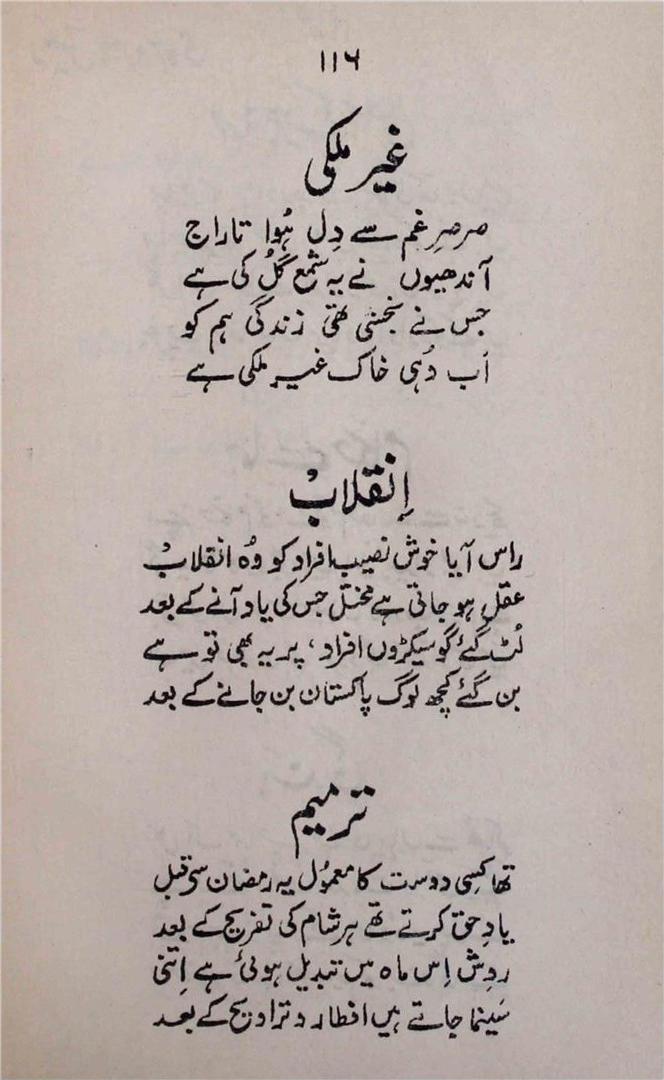 ۱۱۶
غیر ملکی
صرصرِ غم سے دِل ہُوا تاراج
آندھیوں نے یہ شمع گُل کی ہے
جس نے بخشی تھی زندگی ہم کو
اَب وُہی خاک غیر ملکی ہے
اِنقلابْ
راس آیا خوش نصیب افراد کو وُہ انقلابْ
عقل ہو جاتی ہے مختل جس کی یاد آنے کے بعد
لُٹ گئے گو سیکڑوں افراد، پر یہ بھی تو ہے
بن گئے کچھ لوگ پاکستان بن جانے کے بعد
ترمیم
تھا کسِی دوست کا معمُول یہ رمضان سے قبل
یادِ حق کرتے تھے ہر شام کی تفریح کے بعد
روِش اِس ماہ میں تبدیل ہوئی ہے اِتنی
سَینما جاتے ہیں افطار و تراویح کے بعد